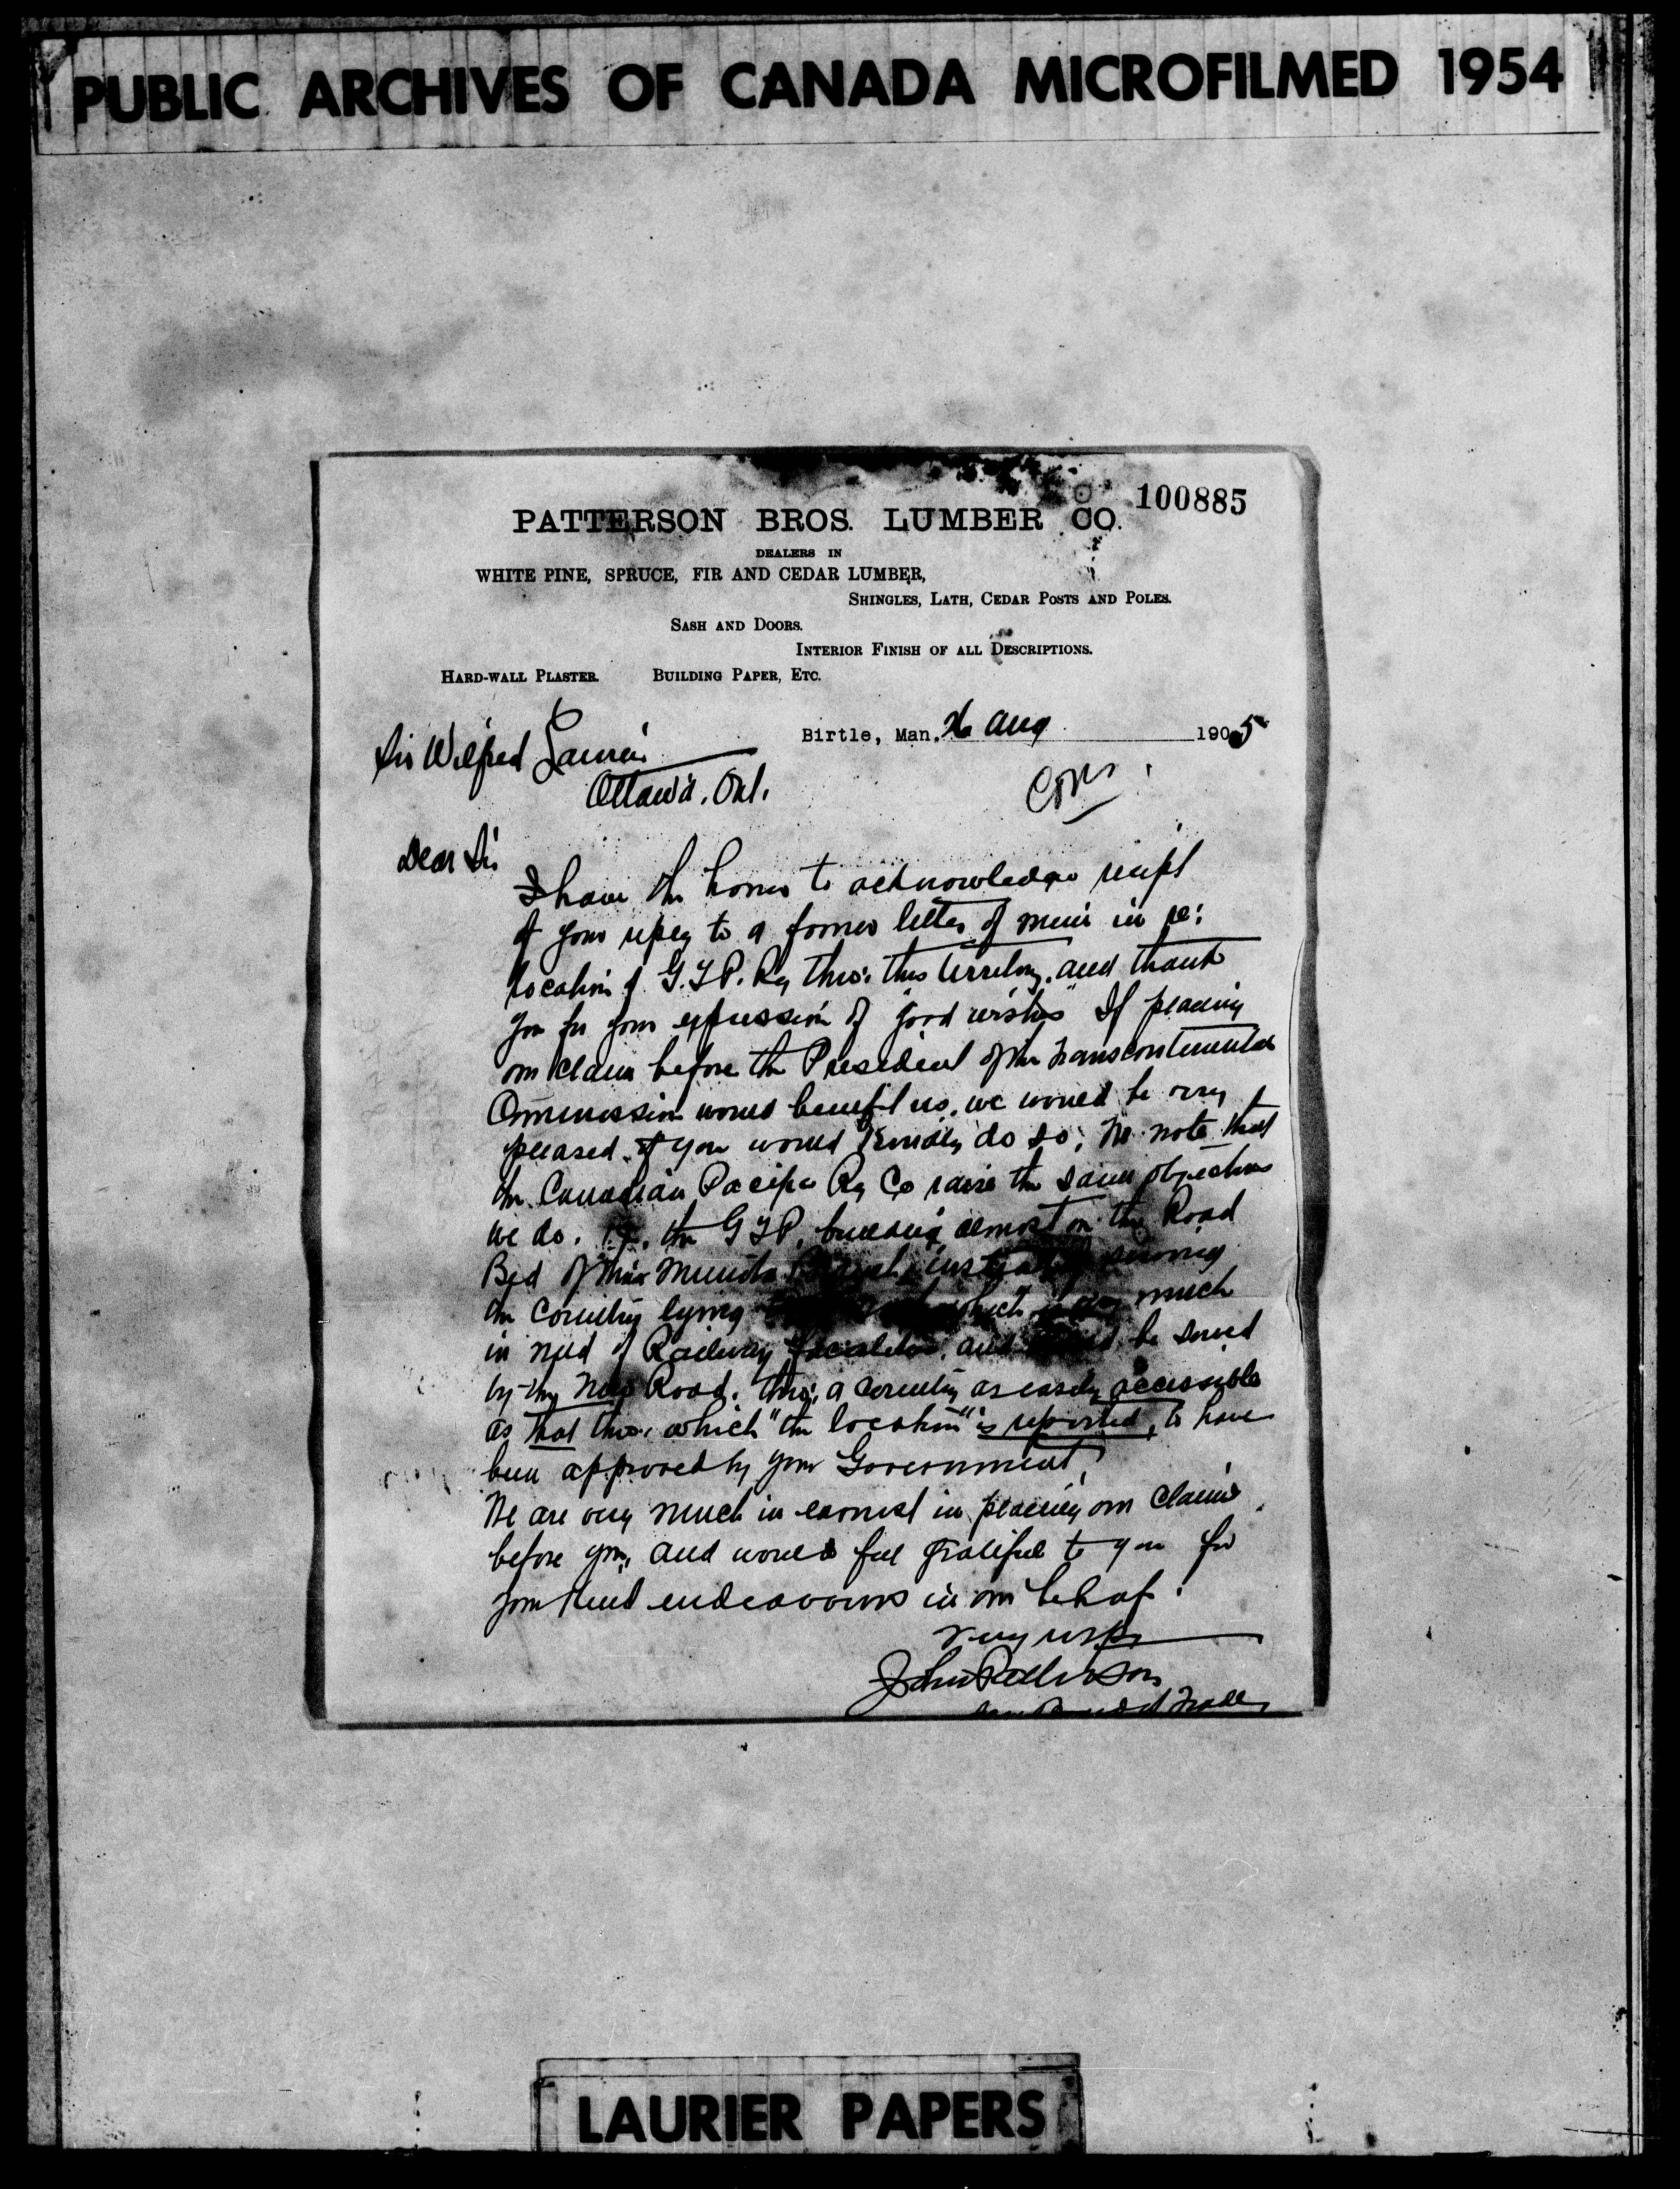 PUBLIC ARCHIVES OF CANADA MICROFILMED 1954
100885
PATTERSON BROS. LUMBER CO.
DEALERS IN
WHITE PINE, SPRUCE, FIR AND CEDAR LUMBER,
SHINGLES, LATH, CEDAR POSTS AND POLES.
SASH AND DOORS.
INTERIOR FINISH OF ALL DESCRIPTIONS.
HARD-WALL PLASTER. BUILDING PAPER, ETC.
Birtle, Man. 26 Aug 1905
Sir Wilfred Laurier
Ottawa. Ont.
Dear Sir
I have the honor to acknowledge receipt
of your reply to a former letter of mine in re:
location of G.T.P. Ry thro: this territory. and thank
you for your expression of "good wishes" If placing
our claim before the President of the Transcontinental
Commission would benefit us, we would be very
pleased if you would kindly do so; We note that
the Canadian Pacific Ry Co raise the same objections
we do. the G T P. building almost on the Road
Bed of their Miniota Branch, instead of serving
the country lying which is very much
in need of Railway facilities, and be served
by the New Road. thro: a country as easily accessible
as that thro: which "the location" is reported, to have
been approved by your Government,
We are very much in earnest in placing our claims
before you, and would feel grateful to you for
your kind endeavours in our behalf.
Very resp
John Patterson
Trade
LAURIER PAPERS